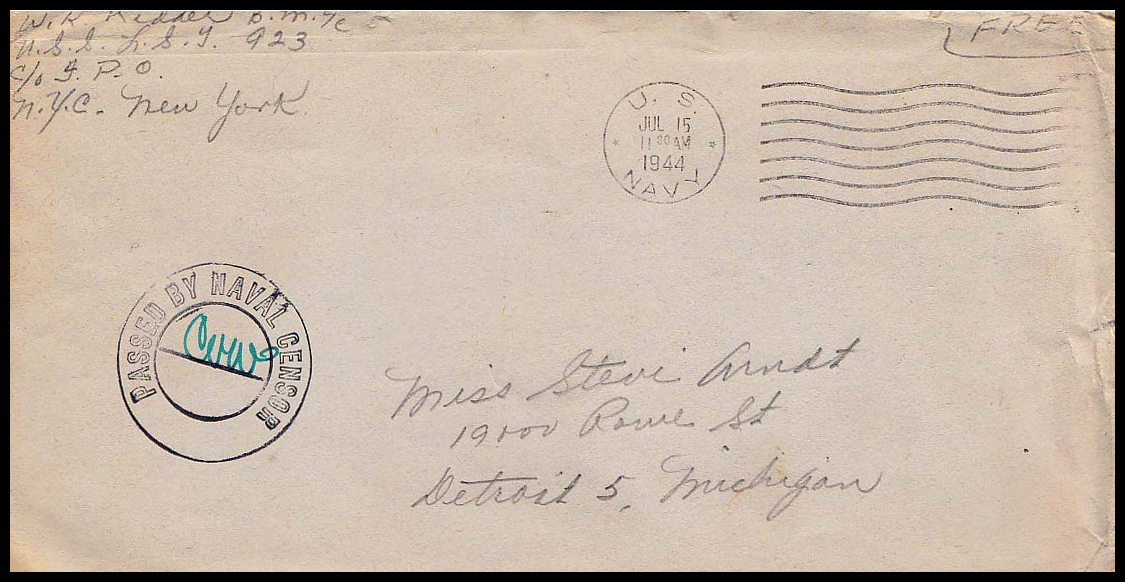 W. R. Kidder B.M. 1/c
U.S.S. L.S.T. 923
c/o F.P.O.
N.Y.C. - New York.
FREE
U. S.
JUL 15
11 30 AM
1944
NAVY
PASSED BY NAVAL CENSOR
Miss Stevi Arndt
19000 St
Detroit 5, Michigan